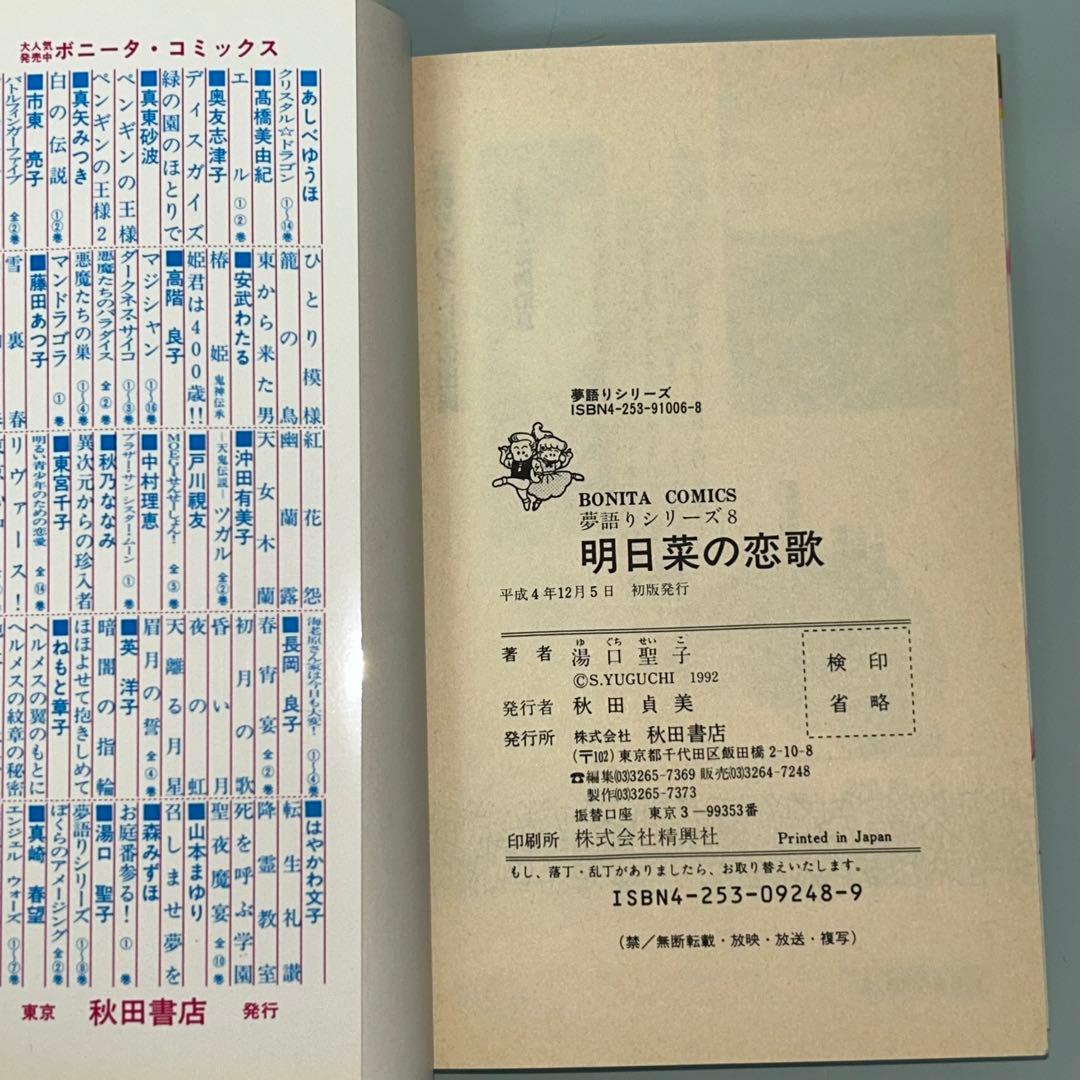 大人気発売中 ボニータ・コミックス
■あしべゆうほ
クリスタル☆ドラゴン ①〜⑭巻
■髙橋美由紀
エル ①②巻
■奥友志津子
ディスガイズ
緑の園のほとりで
■真東砂波
ペンギンの王様
ペンギンの王様2
■真矢みつき
白の伝説 ①②巻
■市東 亮子
バトルフィンガーファイブ 全②巻
ひとり模様
籠の鳥
東から来た男
■安武わたる
椿姫 鬼神伝承
姫君は400歳!!
■高階 良子
マジシャン ①〜⑯巻
ダークネス・サイコ ①〜③巻
悪魔たちのパラダイス 全②巻
悪魔たちの巣 ①〜④巻
マンドラゴラ ①巻
■藤田あつ子
雪裏春
紅花怨
幽蘭露
天女木蘭
■沖田有美子
―天鬼伝説―ツガル 全②巻
■戸川視友
MOEGIせんせーしょん! 全⑤巻
■中村理恵
ブラザー・サン シスター・ムーン ①巻
■秋乃ななみ
異次元からの珍入者
■東宮千子
明るい青少年のための恋愛 全⑭巻
リヴァース!
海老原さん家は今日も大変! ①〜④巻
■長岡 良子
春宵宴 全②巻
初月の歌
昏い月
夜の虹
天離る月星
眉月の誓 全④巻
■英 洋子
暗闇の指輪
ほほよせて抱きしめて
■ねもと章子
ヘルメスの翼のもとに
ヘルメスの紋章の秘密
■はやかわ文子
転生礼讃
降霊教室
死を呼ぶ学園
聖夜魔宴 全⑩巻
■山本まゆり
召しませ夢を
■森みずほ
お庭番参る! ①巻
■湯口 聖子
夢語りシリーズ ①〜⑧巻
ぼくらのアメージング 全②巻
■真崎 春望
エンジェル ウォーズ ①〜⑦巻
東京 秋田書店 発行
夢語りシリーズ
ISBN4-253-91006-8
BONITA COMICS
夢語りシリーズ8
明日菜の恋歌
平成4年12月5日 初版発行
ゆぐちせいこ
著者 湯口聖子
©S.YUGUCHI 1992
検印
省略
発行者 秋田貞美
発行所 株式会社 秋田書店
(〒102)東京都千代田区飯田橋2-10-8
☎編集(03)3265-7369 販売(03)3264-7248
製作(03)3265-7373
振替口座 東京3-99353番
印刷所 株式会社精興社 Printed in Japan
もし、落丁・乱丁がありましたら、お取り替えいたします。
ISBN4-253-09248-9
(禁/無断転載・放映・放送・複写)